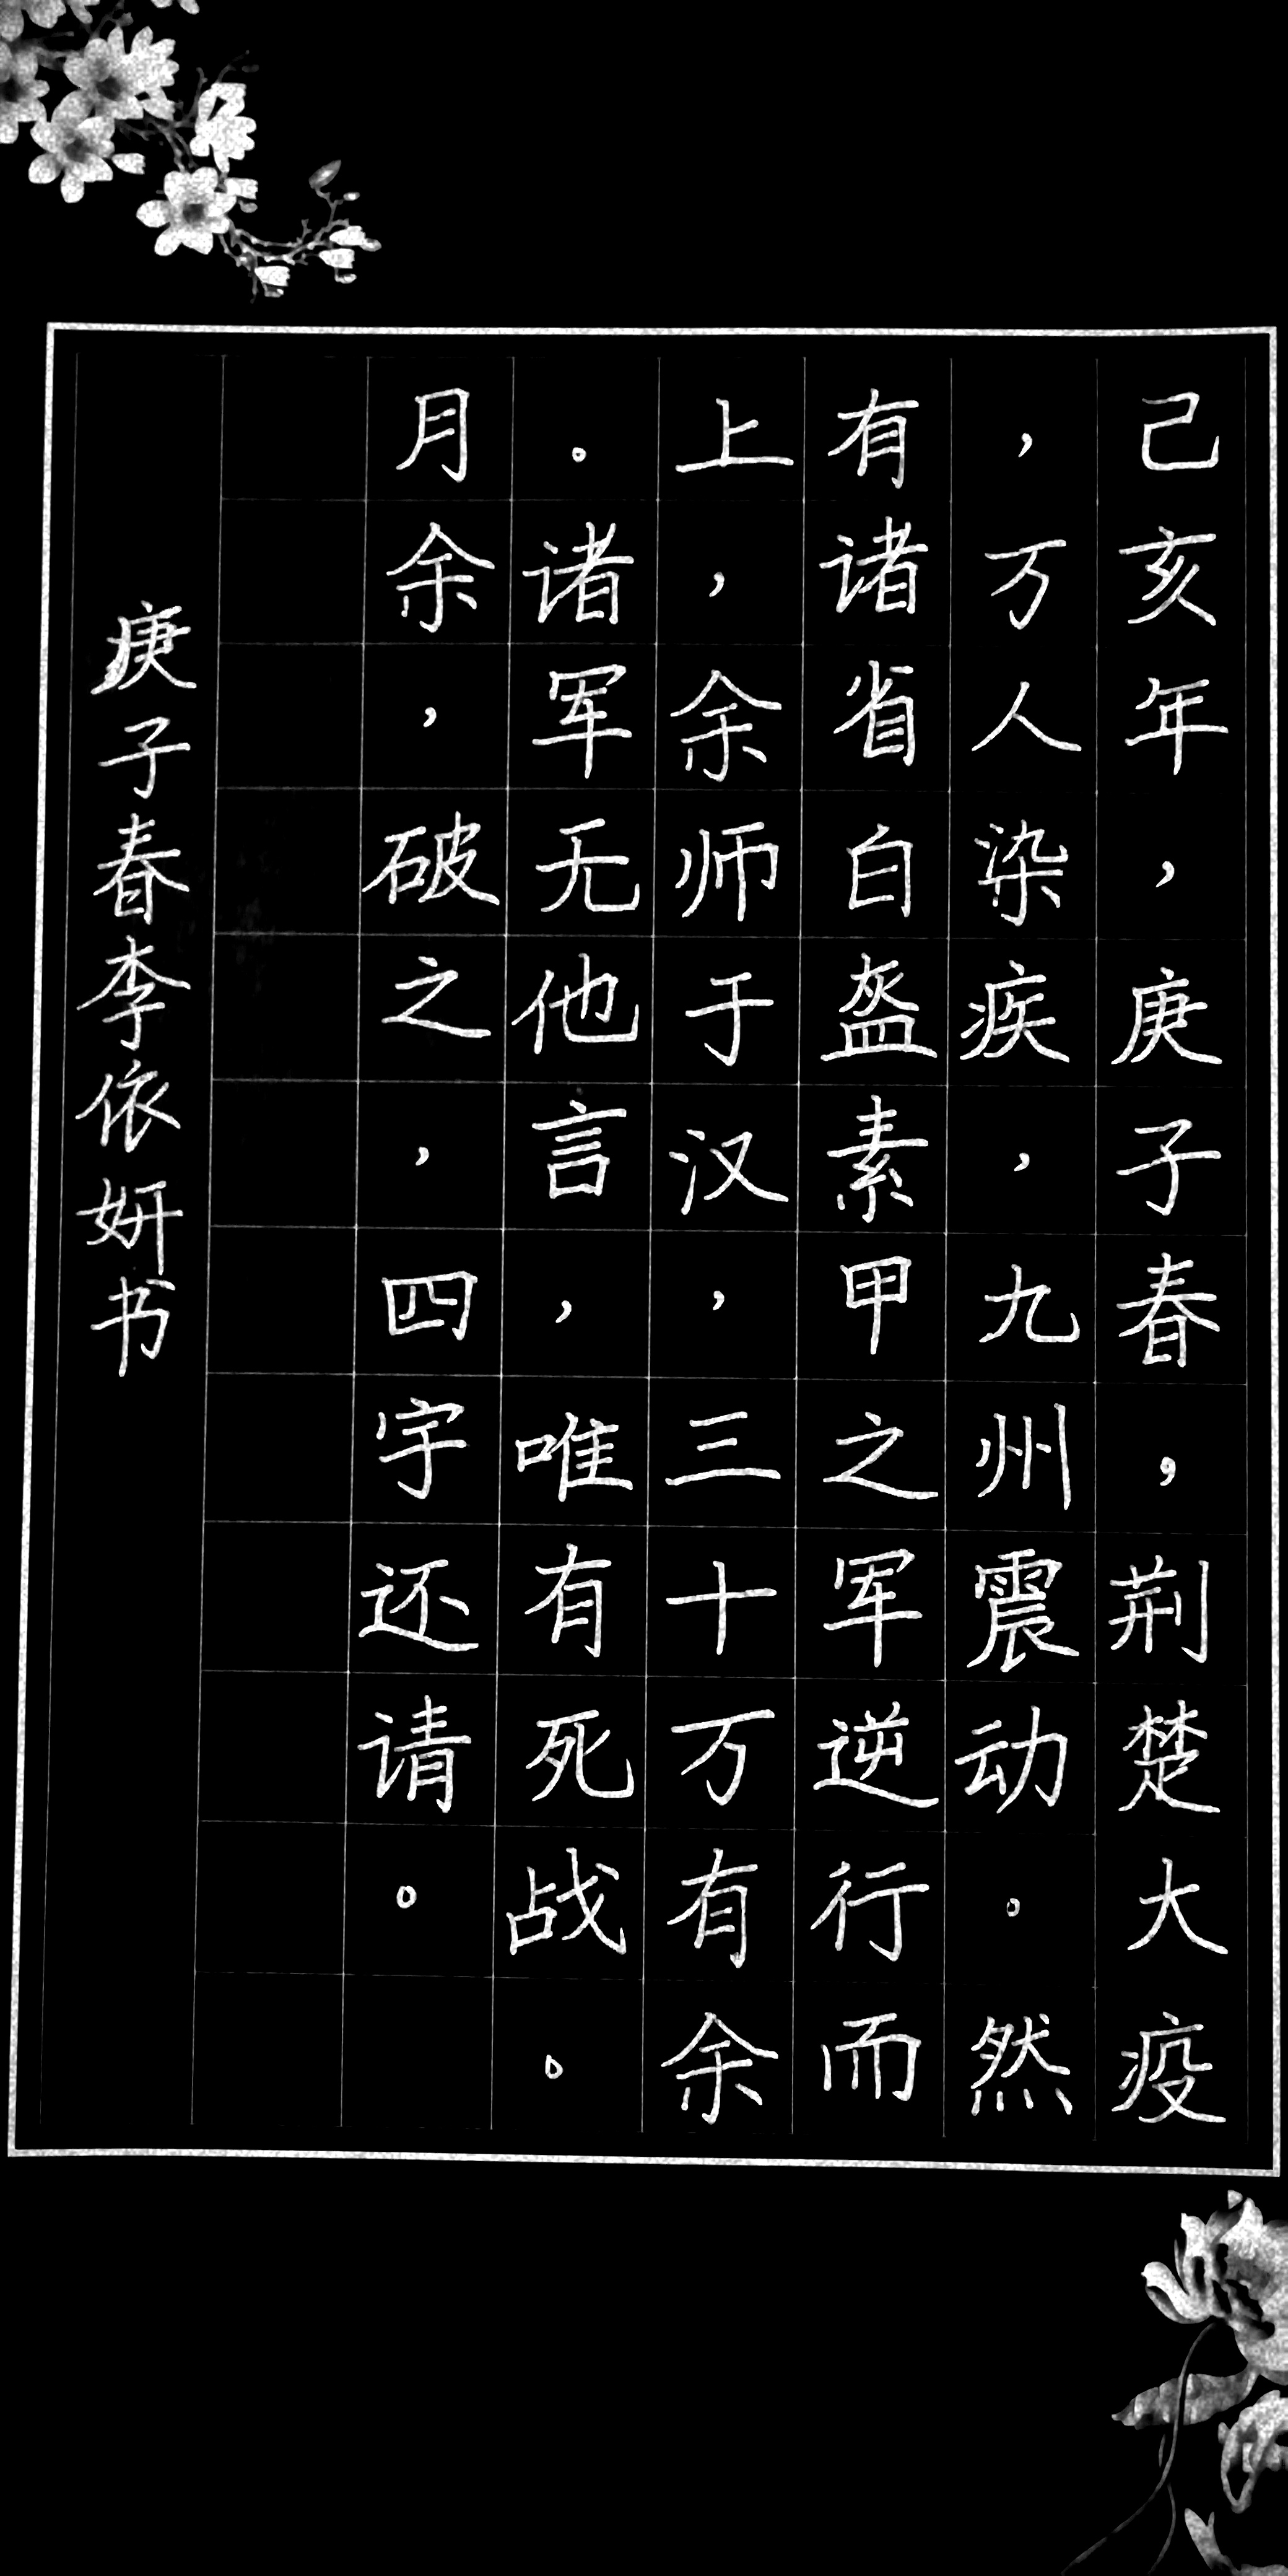 己亥年，庚子春，荆楚大疫
，万人染疾，九州震动。然
有诸省白盔素甲之军逆行而
上，余师于汉，三十万有余
。诸军无他言，唯有死战。
月余，破之，四宇还请。
庚子春李依妍书